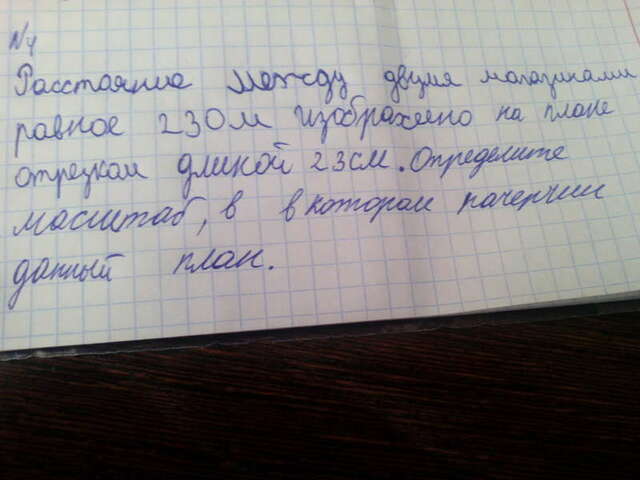 №4
Расстояние между двумя магазинами
равное 230м изображено на плане
отрезком длиной 23см. Определите
масштаб, в в котором начерчен
данный план.